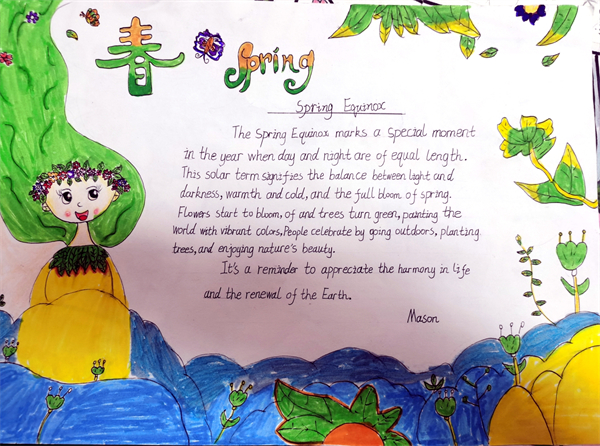 春 Spring
Spring Equinox
The Spring Equinox marks a special moment
in the year when day and night are of equal length.
This solar term signifies the balance between light and
darkness, warmth and cold, and the full bloom of spring.
Flowers start to bloom, of and trees turn green, painting the
world with vibrant colors, People celebrate by going outdoors, planting
trees, and enjoying nature's beauty.
It's a reminder to appreciate the harmony in life
and the renewal of the Earth.
Mason